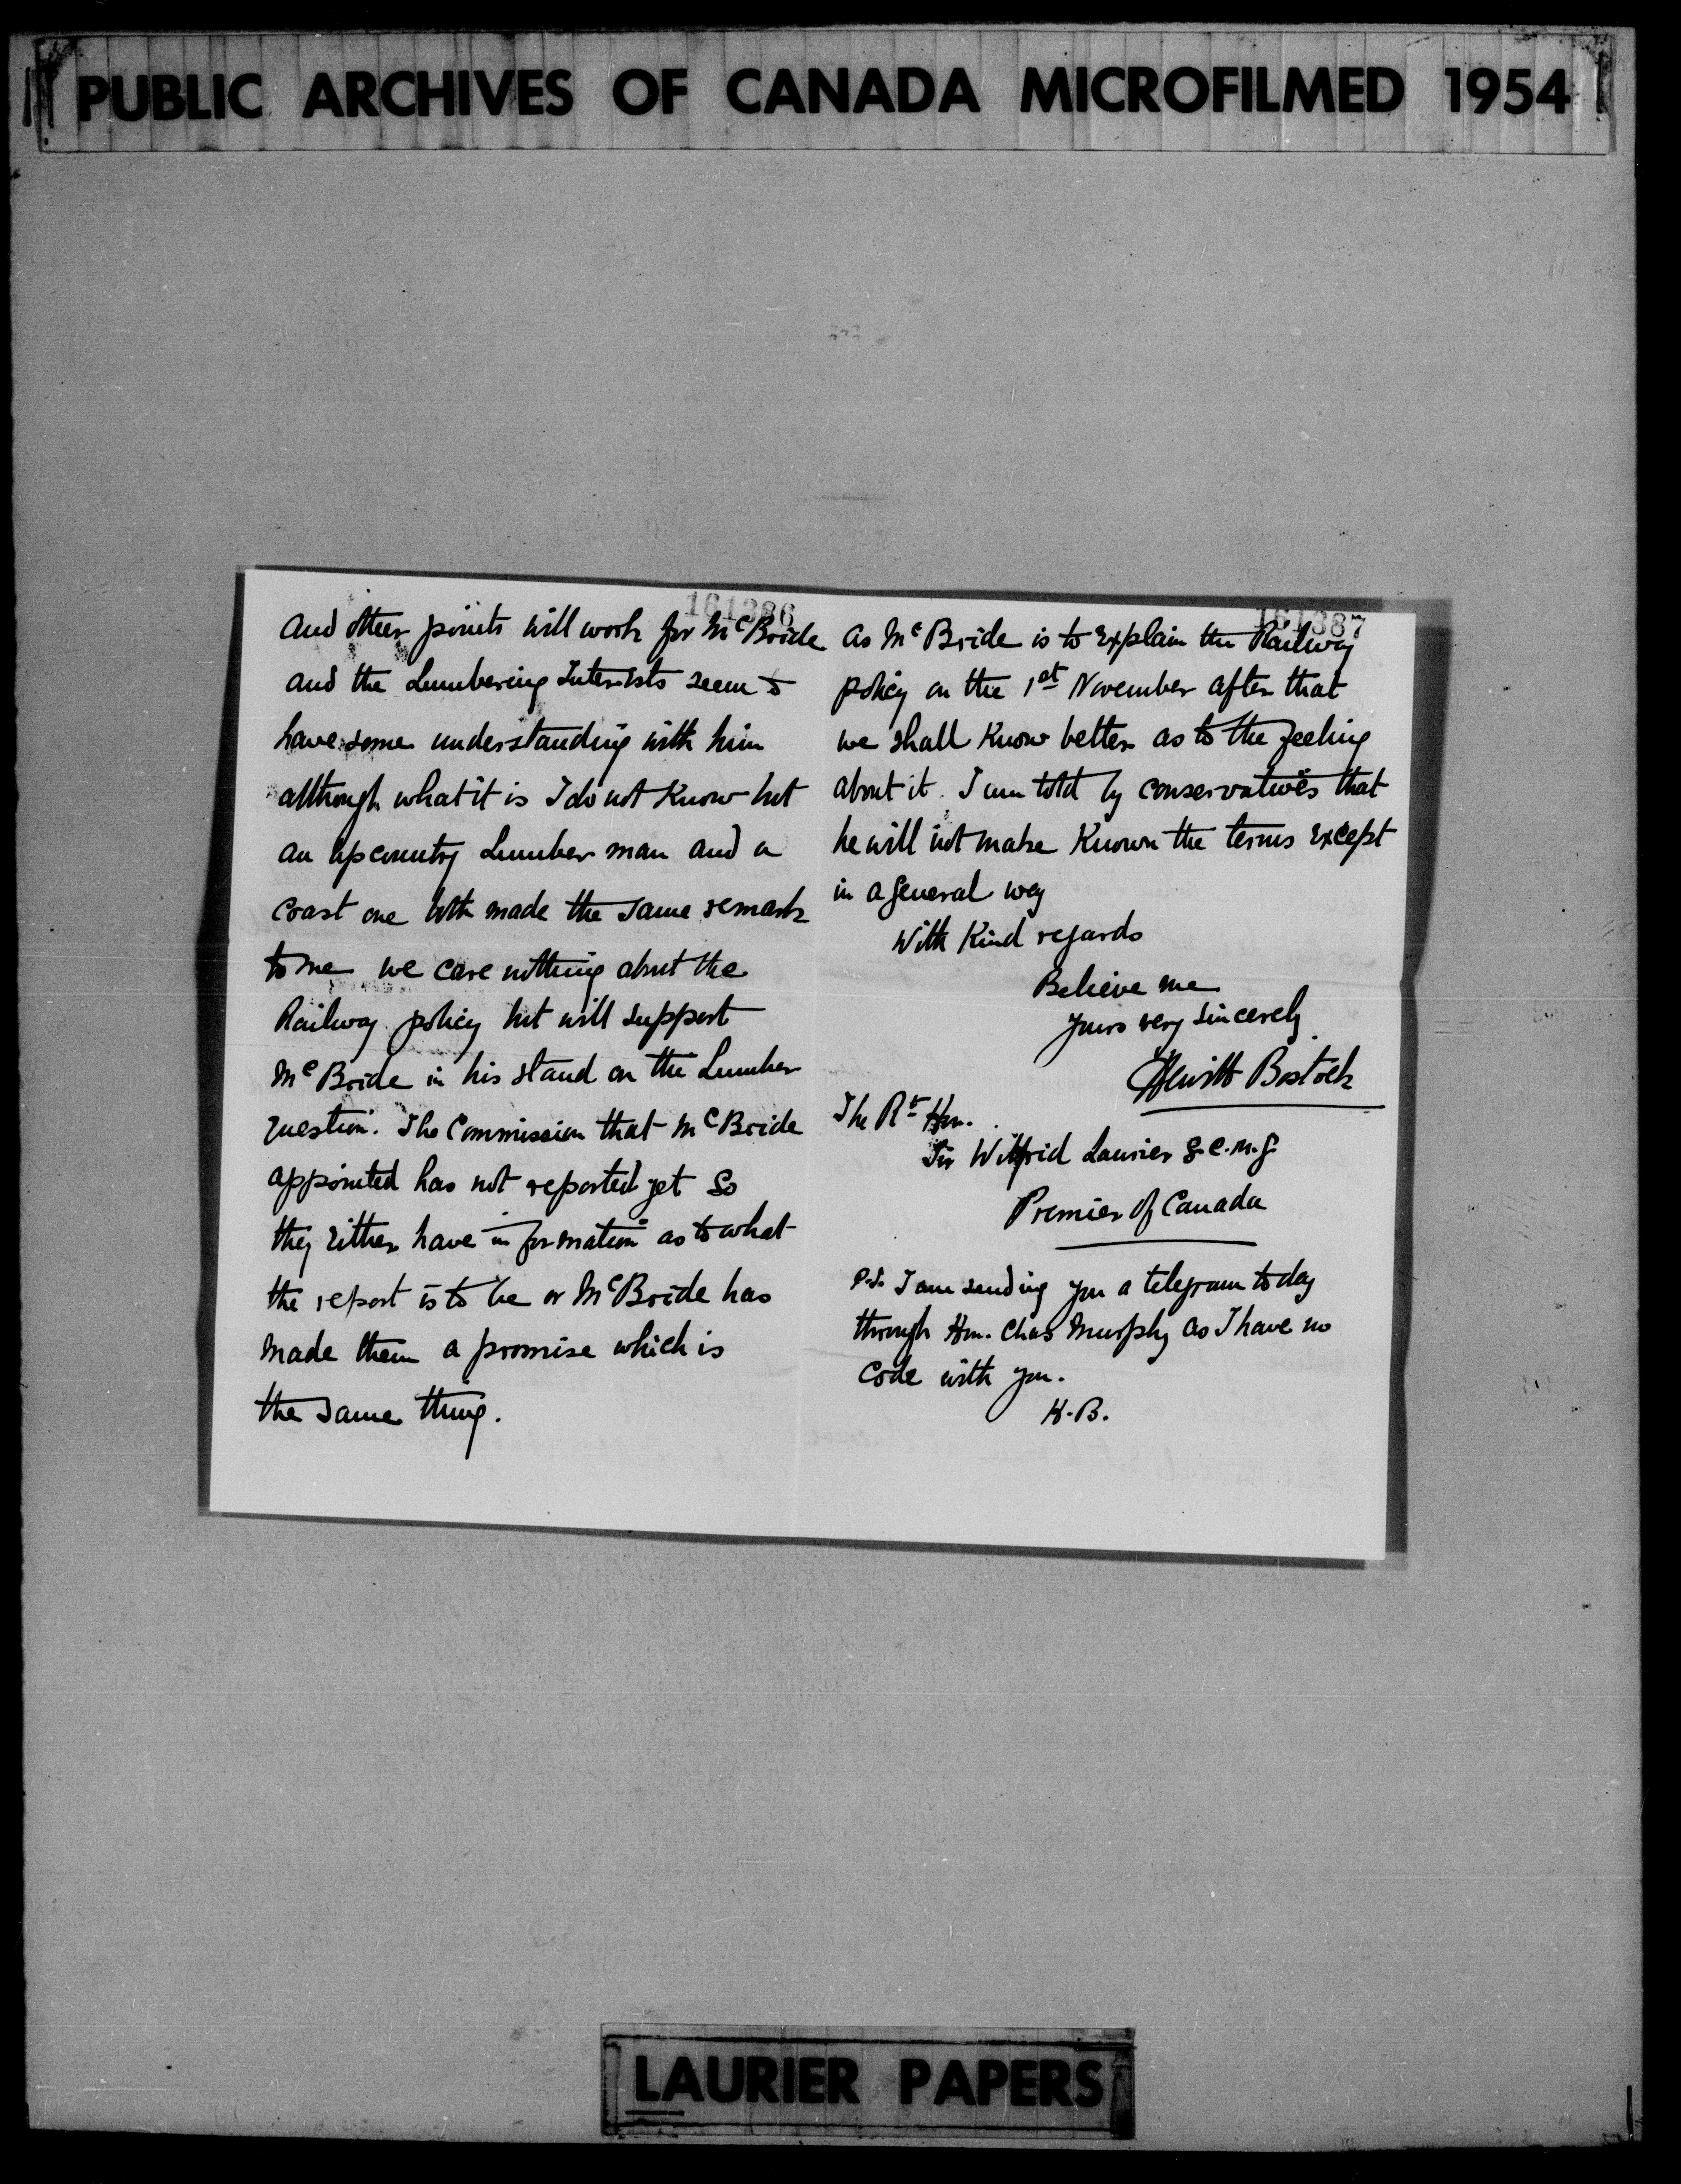 PUBLIC ARCHIVES OF CANADA MICROFILMED 1954
161386
and other points will work for McBride
and the Lumbering Interests seem to
have some understanding with him
although what it is I do not know but
an upcountry Lumber man and a
coast one both made the same remark
to me we care nothing about the
Railway policy but will support
McBride in his stand on the Lumber
question. The Commission that McBride
appointed has not reported yet so
they either have information as to what
the report is to be or McBride has
made them a promise which is
the same thing.
161387
as McBride is to explain the Railway
policy on the 1st November after that
we shall know better as to the feeling
about it. I am told by conservatives that
he will not make known the terms except
in a general way
With kind regards
Believe me
yours very sincerely
Hewitt Bostock
The Rt Hon.
Sir Wilfrid Laurier G.C.M.G.
Premier of Canada
P.S. I am sending you a telegram today
through Hon. Chas Murphy as I have no
code with you.
H.B.
LAURIER PAPERS